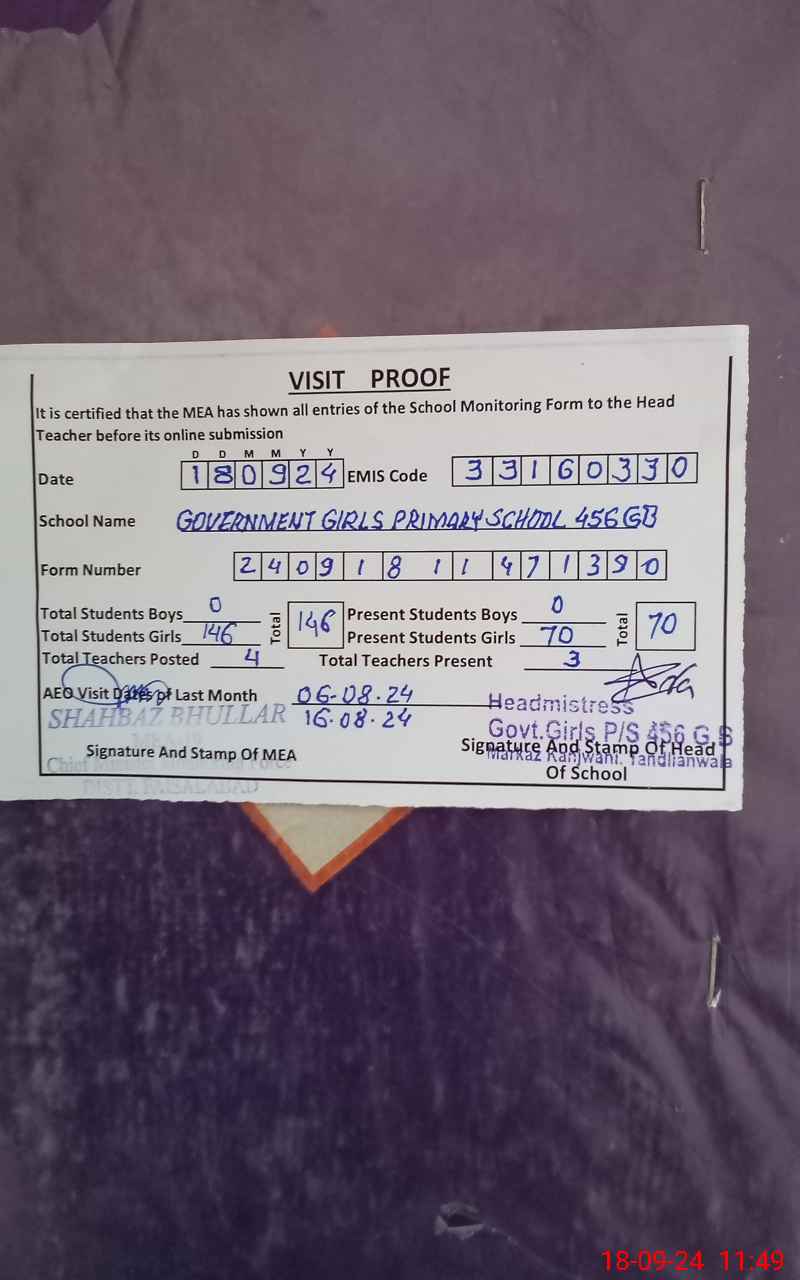 VISIT PROOF
It is certified that the MEA has shown all entries of the School Monitoring Form to the Head
Teacher before its online submission
D D M M Y Y
Date 1 8 0 9 2 4 EMIS Code 3 3 1 6 0 3 3 0
School Name GOVERNMENT GIRLS PRIMARY SCHOOL 456 GB
Form Number 2 4 0 9 1 8 1 1 4 7 1 3 9 0
Total Students Boys 0 Total 146 Present Students Boys 0 Total 70
Total Students Girls 146 Present Students Girls 70
Total Teachers Posted 4 Total Teachers Present 3
AEO Visit Dates of Last Month 06-08.24
16.08.24
SHAHBAZ BHULLAR
Headmistress
Govt.Girls P/S 456 G.B
Markaz Kanjwani. Tandlianwala
Signature And Stamp Of MEA
Signature And Stamp Of Head
Of School
DISTT. FAISALABAD
18-09-24 11:49